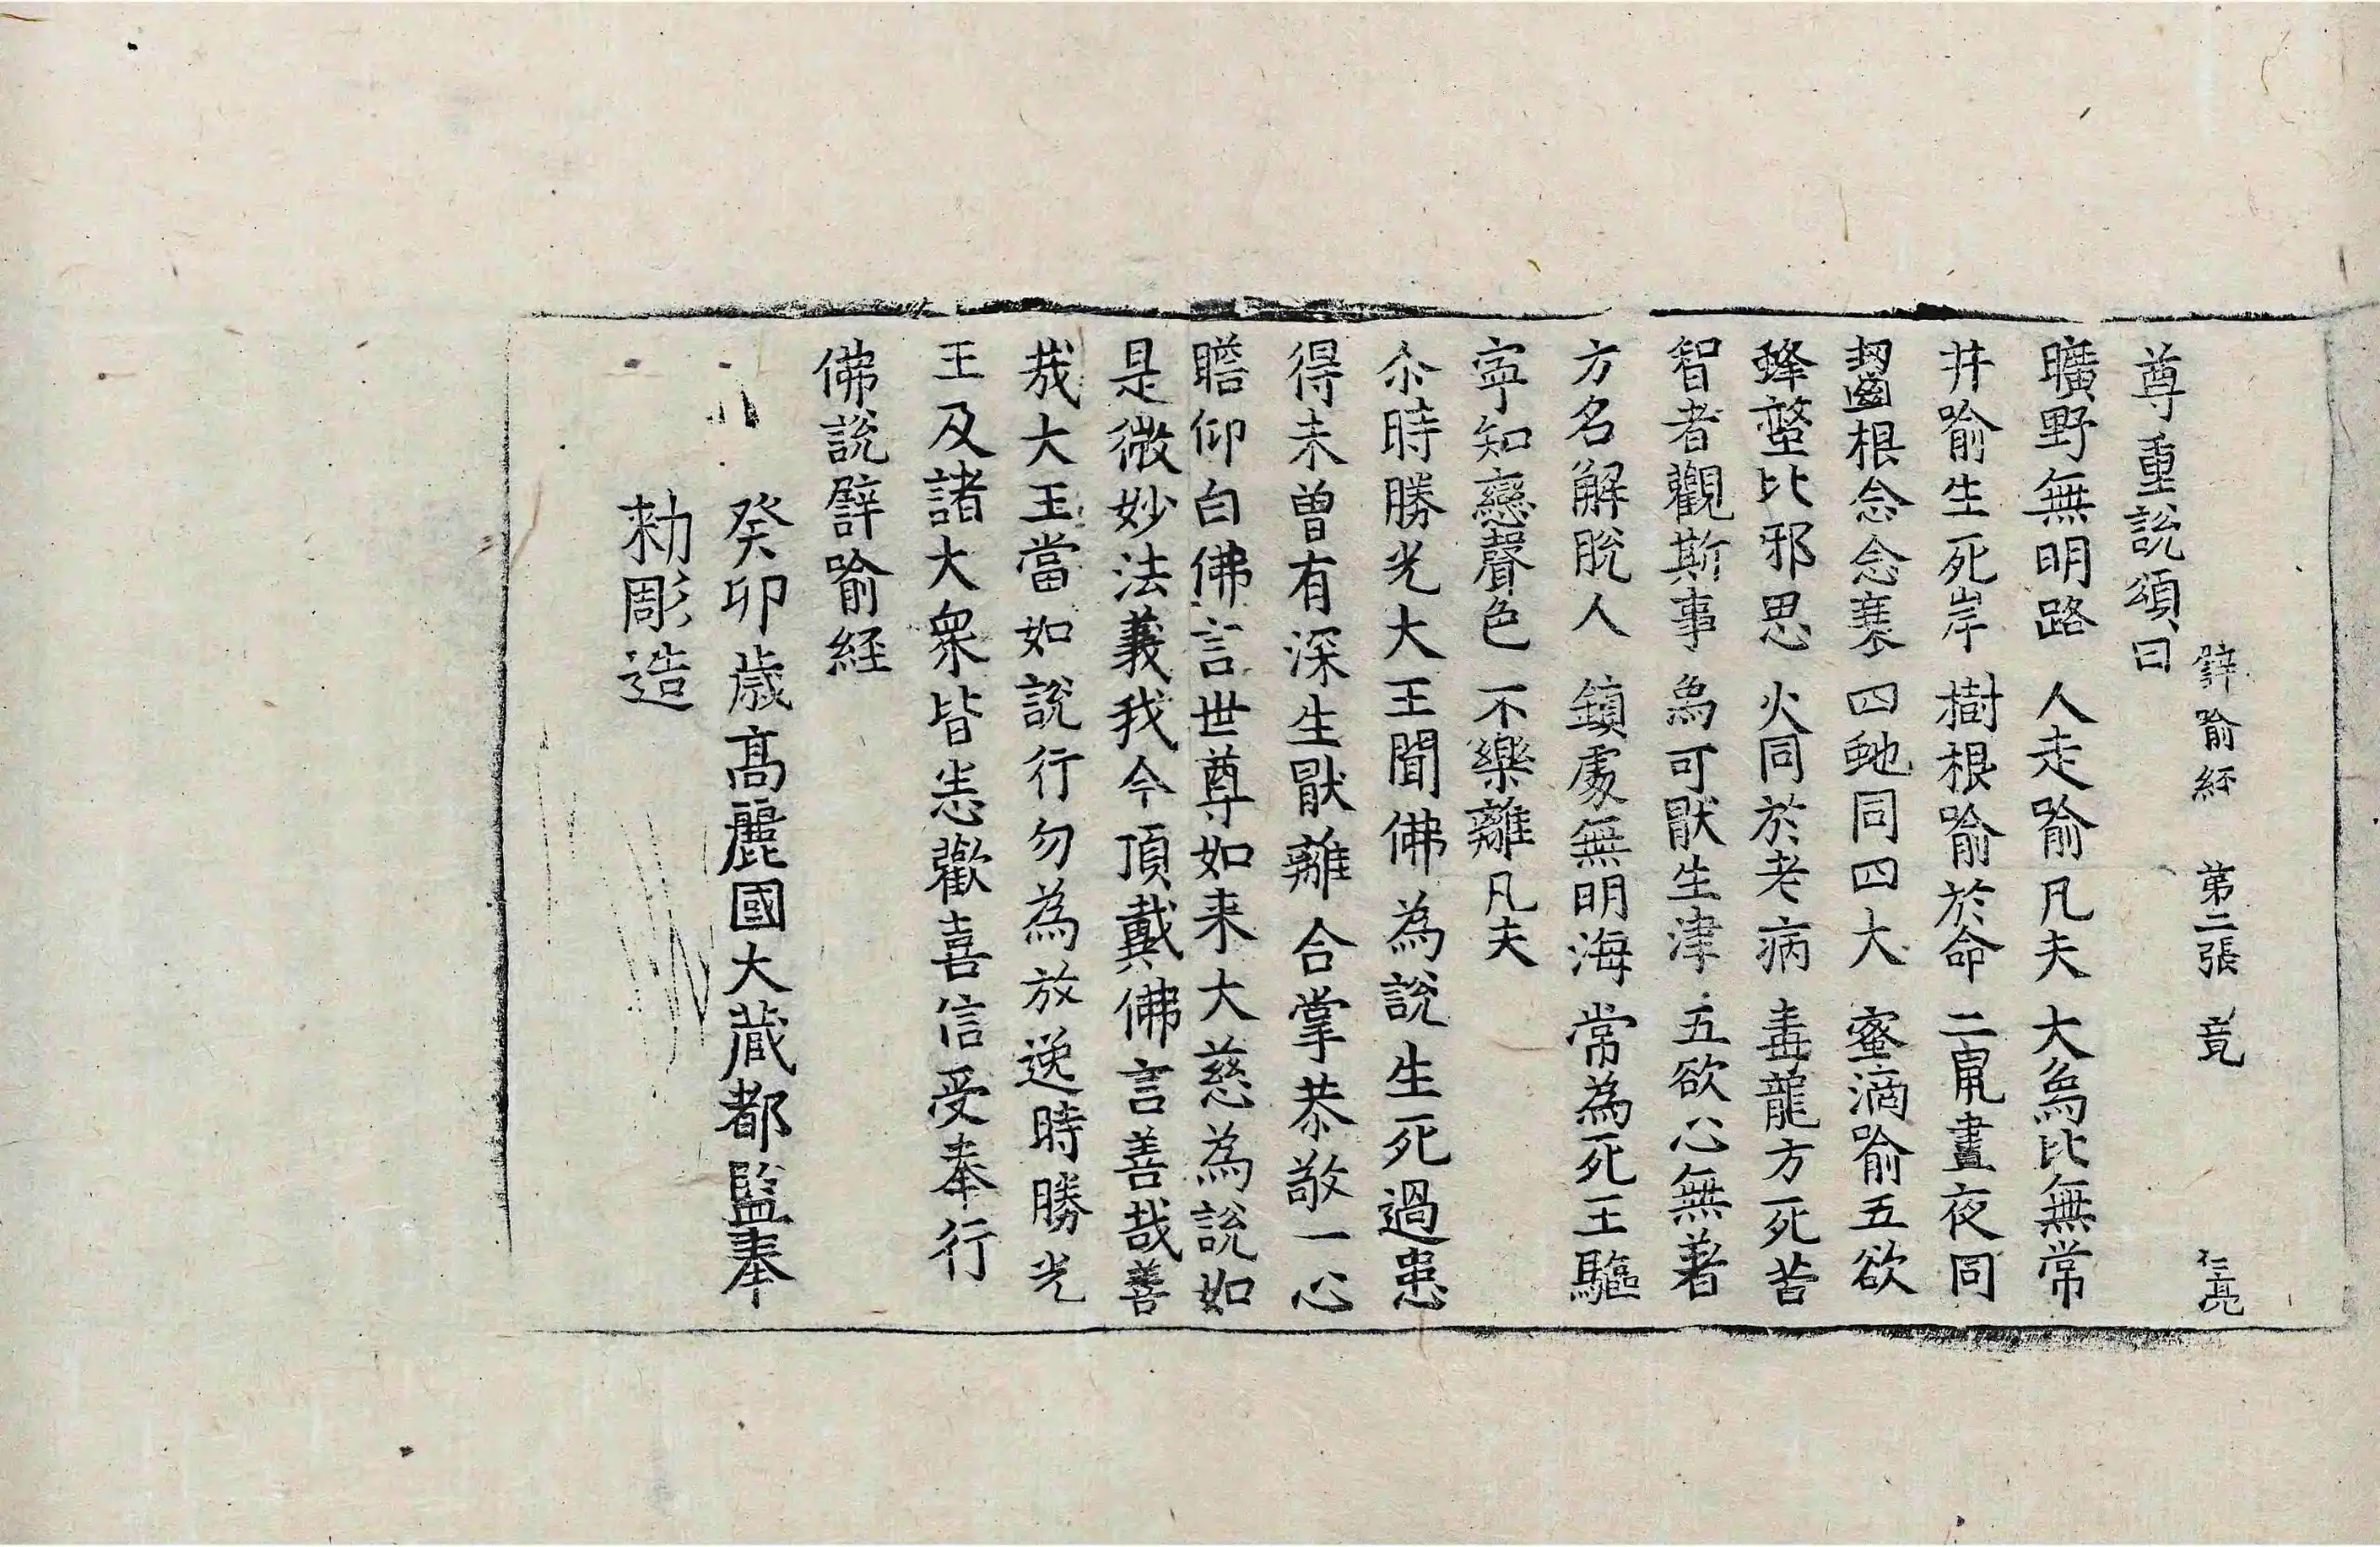 譬喻經 第二張 竟 仁亮
尊重說頌曰
曠野無明路 人走喻凡夫 大象比無常
井喻生死岸 樹根喻於命 二鼠晝夜同
齧根念念衰 四虵同四大 蜜滴喻五欲
蜂螫比邪思 火同於老病 毒龍方死苦
智者觀斯事 象可猒生津 五欲心無著
方名解脫人 鎮處無明海 常為死王驅
寧知戀聲色 不樂離凡夫
尒時勝光大王聞佛為說生死過患
得未曾有深生猒離合掌恭敬一心
瞻仰白佛言世尊如来大慈為說如
是微妙法義我今頂戴佛言善哉善
哉大王當如說行勿為放逸時勝光
王及諸大衆皆悉歡喜信受奉行
佛說譬喻経
癸卯歲高麗國大藏都監奉
勑彫造